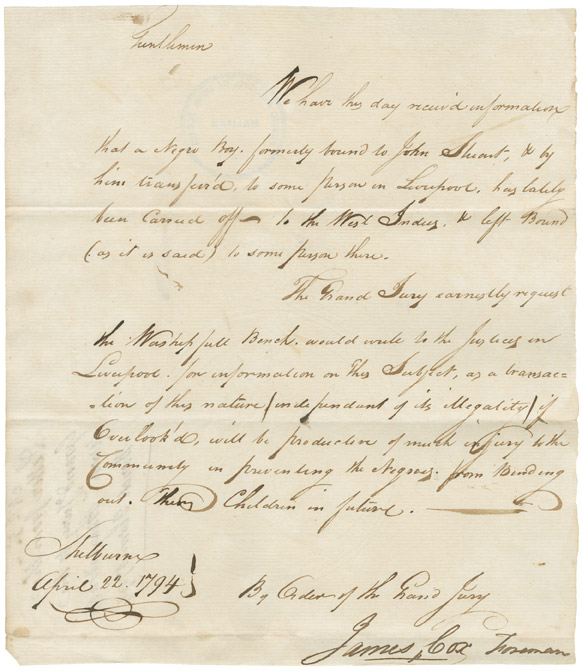 Gentlemen
We have this day receiv'd information
that a Negro Boy. formerly bound to John Stuart, & by
him transfer'd, to some person in Liverpool. has lately
been Carried off — to the West Indies, & left Bound
(as it is said) to some person there.
The Grand Jury earnestly request
the Worshipfull Bench. would write to the Justices in
Liverpool. for information on this Subject, as a transac=
=tion of this nature (independant of its Illegality) if
Overlook'd, will be productive of much injury to the
Community in preventing the Negroes. from Binding
out. Their Children in future. —
Shelburne
April 22. 1794 }
By Order of the Grand Jury
James Cox Foreman